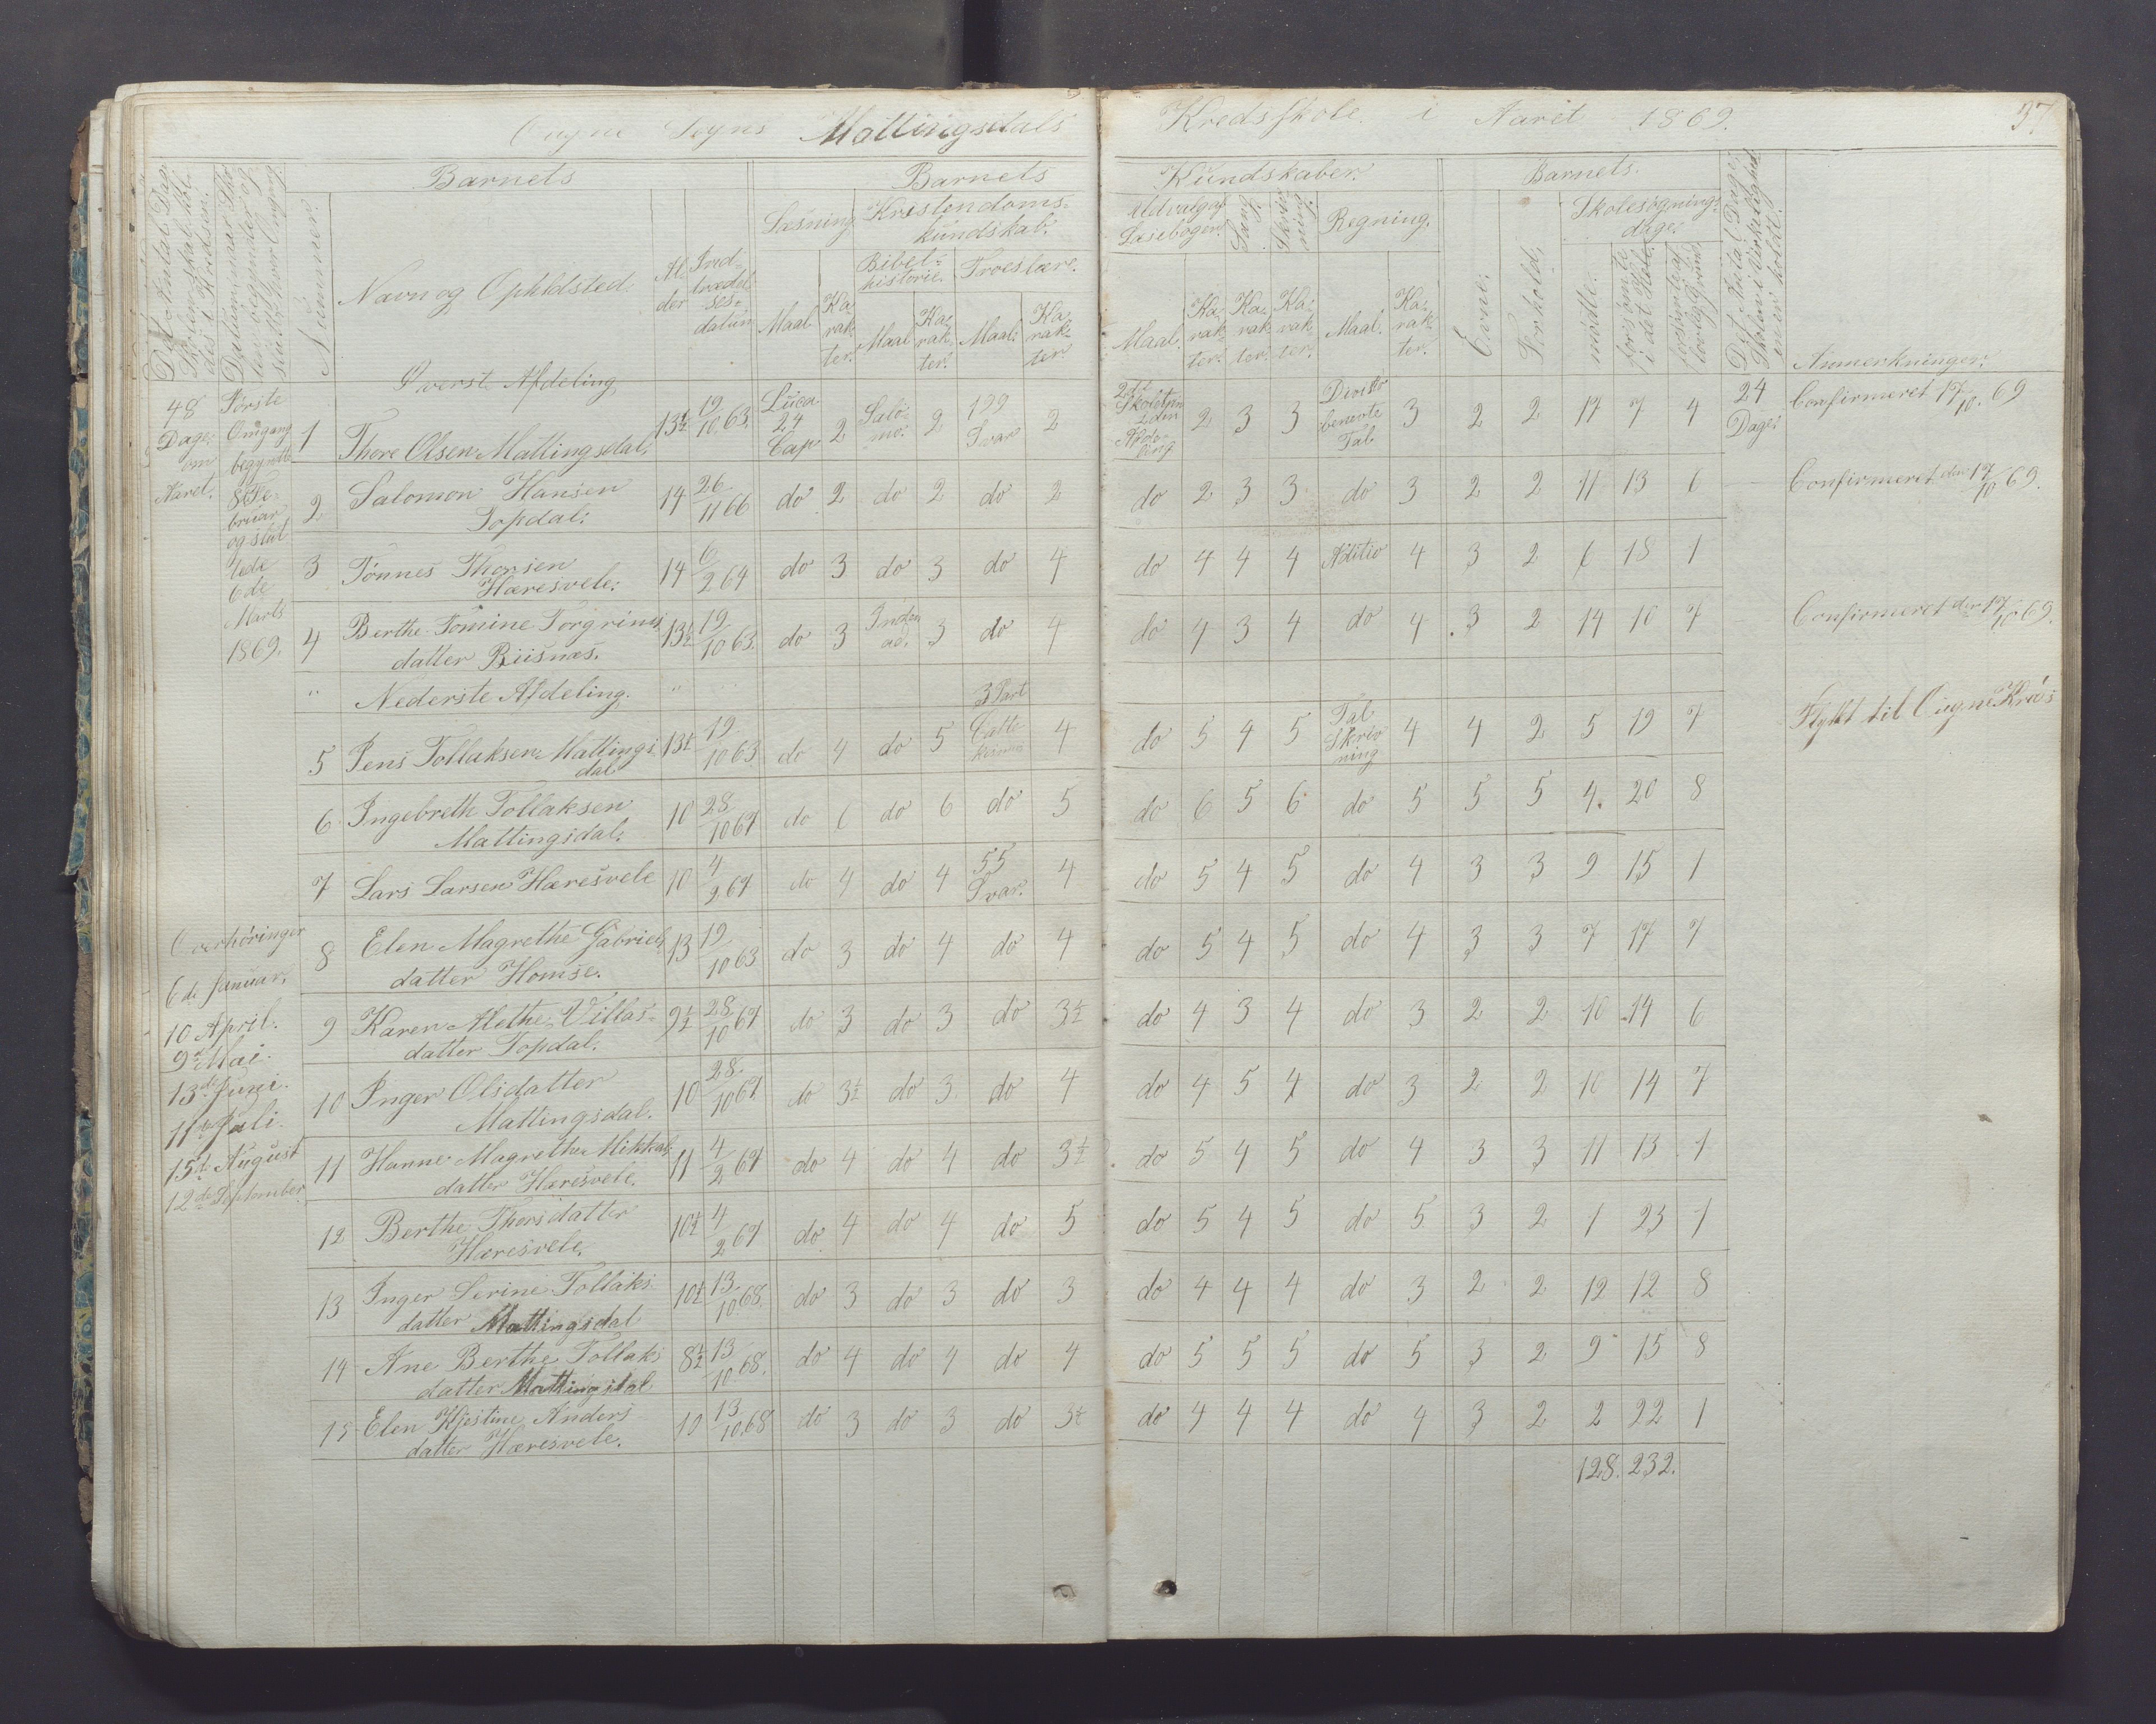 Ougne Sogns Mattingsdals Kredsskole i Aaret 1869. 37
Barnets
Barnets Kundskaber.
Barnets.
Det Antal Dage Skolen skal holdes i Kredsen.
Datum naar Skolen begynder og sluttes hver Omgang.
Nummer.
Navn og Opholdsted.
Alder
Indtrædelsesdatum
Læsning
Kristendomskundskab.
Bibelhistorie.
Troeslære.
Maal Karakter. Maal Karakter. Maal. Karakter
Udvalg af Læsebogen.
Sang.
Skrivning.
Regning.
Maal. Karakter. Karakter. Karakter. Maal. Karakter.
Evne.
Forhold.
Skolesøgningsdage.
mødte.
forsømte i det Hele.
forsømte af lovlig Grund.
Det Antal Dage Skolen i Virkelighed en er holdt.
Anmerkninger.
48 Dage om Aaret.
Første Omgang begyndte 8de Februar og sluttede 6de Marts 1869.
Øverste Afdeling
1 Thore Olsen Mattingsdal. 13½ 19/10 63. Luca 24 Cap 2 Salomo. 2 199 Svar 2 2det Skoletrin 2den Afdeling 2 3 3 Divisio benevnte Tal 3 2 2 17 7 4 24 Dage. Confirmeret 17/10. 69
2 Salomon Hansen Sopdal. 14 26/11 66 do 2 do 2 do 2 do 2 3 3 do 3 2 2 11 13 6 Confirmeret den 17/10 69.
3 Tønnes Thorsen Hæresvele. 14 6/2 64 do 3 do 3 do 4 do 4 4 4 Aditio 4 3 2 6 18 1
4 Berthe Tomine Torgrims datter Riisnæs. 13½ 19/10 63. do 3 3 do 4 do 4 3 4 do 4 3 2 14 10 7 Confirmeret den 17/10 69.
" Nederste Afdeling. "
5 Jens Tollaksen Mattings dal 13½ 19/10 63 do 4 do 5 3 Part 4 do 5 4 5 Tal Skrivning 4 4 2 5 19 7 Flyttt til Ougne Kreds
6 Ingebreth Tollaksen Mattingsdal. 10 28/10 67 do 6 do 6 do 5 do 6 5 6 do 5 5 5 4. 20 8
7 Lars Larsen Hæresvele 10 4/2 67 do 4 do 4 55 Svar. 4 do 5 4 5 do 4 3 3 9 15 1
8 Elen Magrethe Gabriels datter Homse. 13 19/10 63 do 3 do 4 do 4 do 5 4 5 do 4 3 3 7 17 7
9 Karen Alethe Villas datter Sopdal. 9½ 28/10 67 do 3 do 3 do 3½ do 4 3 4 do 3 2 2 10 14 6
10 Inger Olsdatter Mattingsdal. 10 28/10 67 do 3½ do 3 do 4 do 4 5 4 do 3 2 2 10 14 7
11 Hanne Magrethe Mikkals datter Hæresvele. 11 4/2 67 do 4 do 4 do 3½ do 5 4 5 do 4 3 3 11 13 1
12 Berthe Thorsdatter Hæresvele. 10½ 4/2 67 do 4 do 4 do 5 do 5 4 5 do 5 3 2 1 23 1
13 Inger Serine Tollaks datter Mattingsdal 10½ 13/10 68. do 3 do 3 do 3 do 4 4 4 do 3 2 2 12 12 8
14 Ane Berthe Tollaks datter Mattingsdal 8½ 13/10 68. do 4 do 4 do 4 do 5 5 5 do 5 3 2 9 15 8
15 Elen Kjestine Anders datter Hæresvele. 10 13/10 68 do 3 do 3 do 3½ do 4 4 4 do 4 3 2 2 22 1
128. 232.
Overhøringer
6de Januar.
10 April.
9de Mai.
13de Juni.
11te Juli.
15de August
12de September.